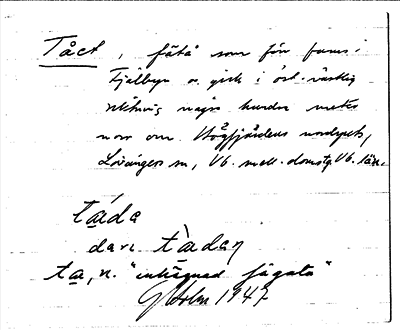 Tået, fäta som förr fanns i
Fjälbyn o. gick i öst-västlig
riktning några hundra meter
norr om Högfjärdens nordspets,
Lövångers sn, Vb. mell. domsg. Vb. län.
táda
dav. tàdaŋ
ta, n. "inhägnad fägata"
G Holm 1947